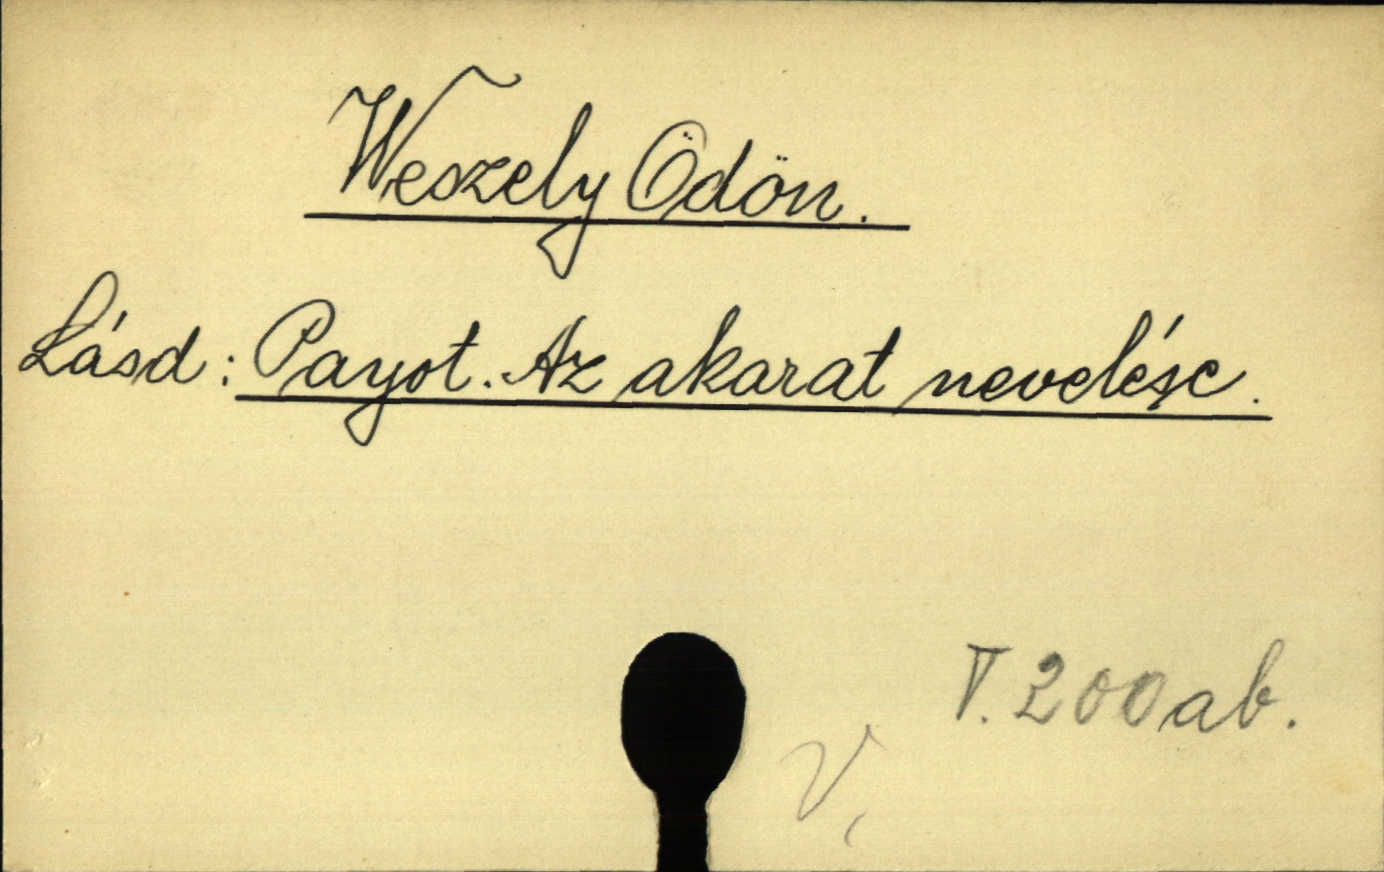 Weszely Ödön.
Lásd: Payot. Az akarat nevelése.
V. 200 ab.
V,